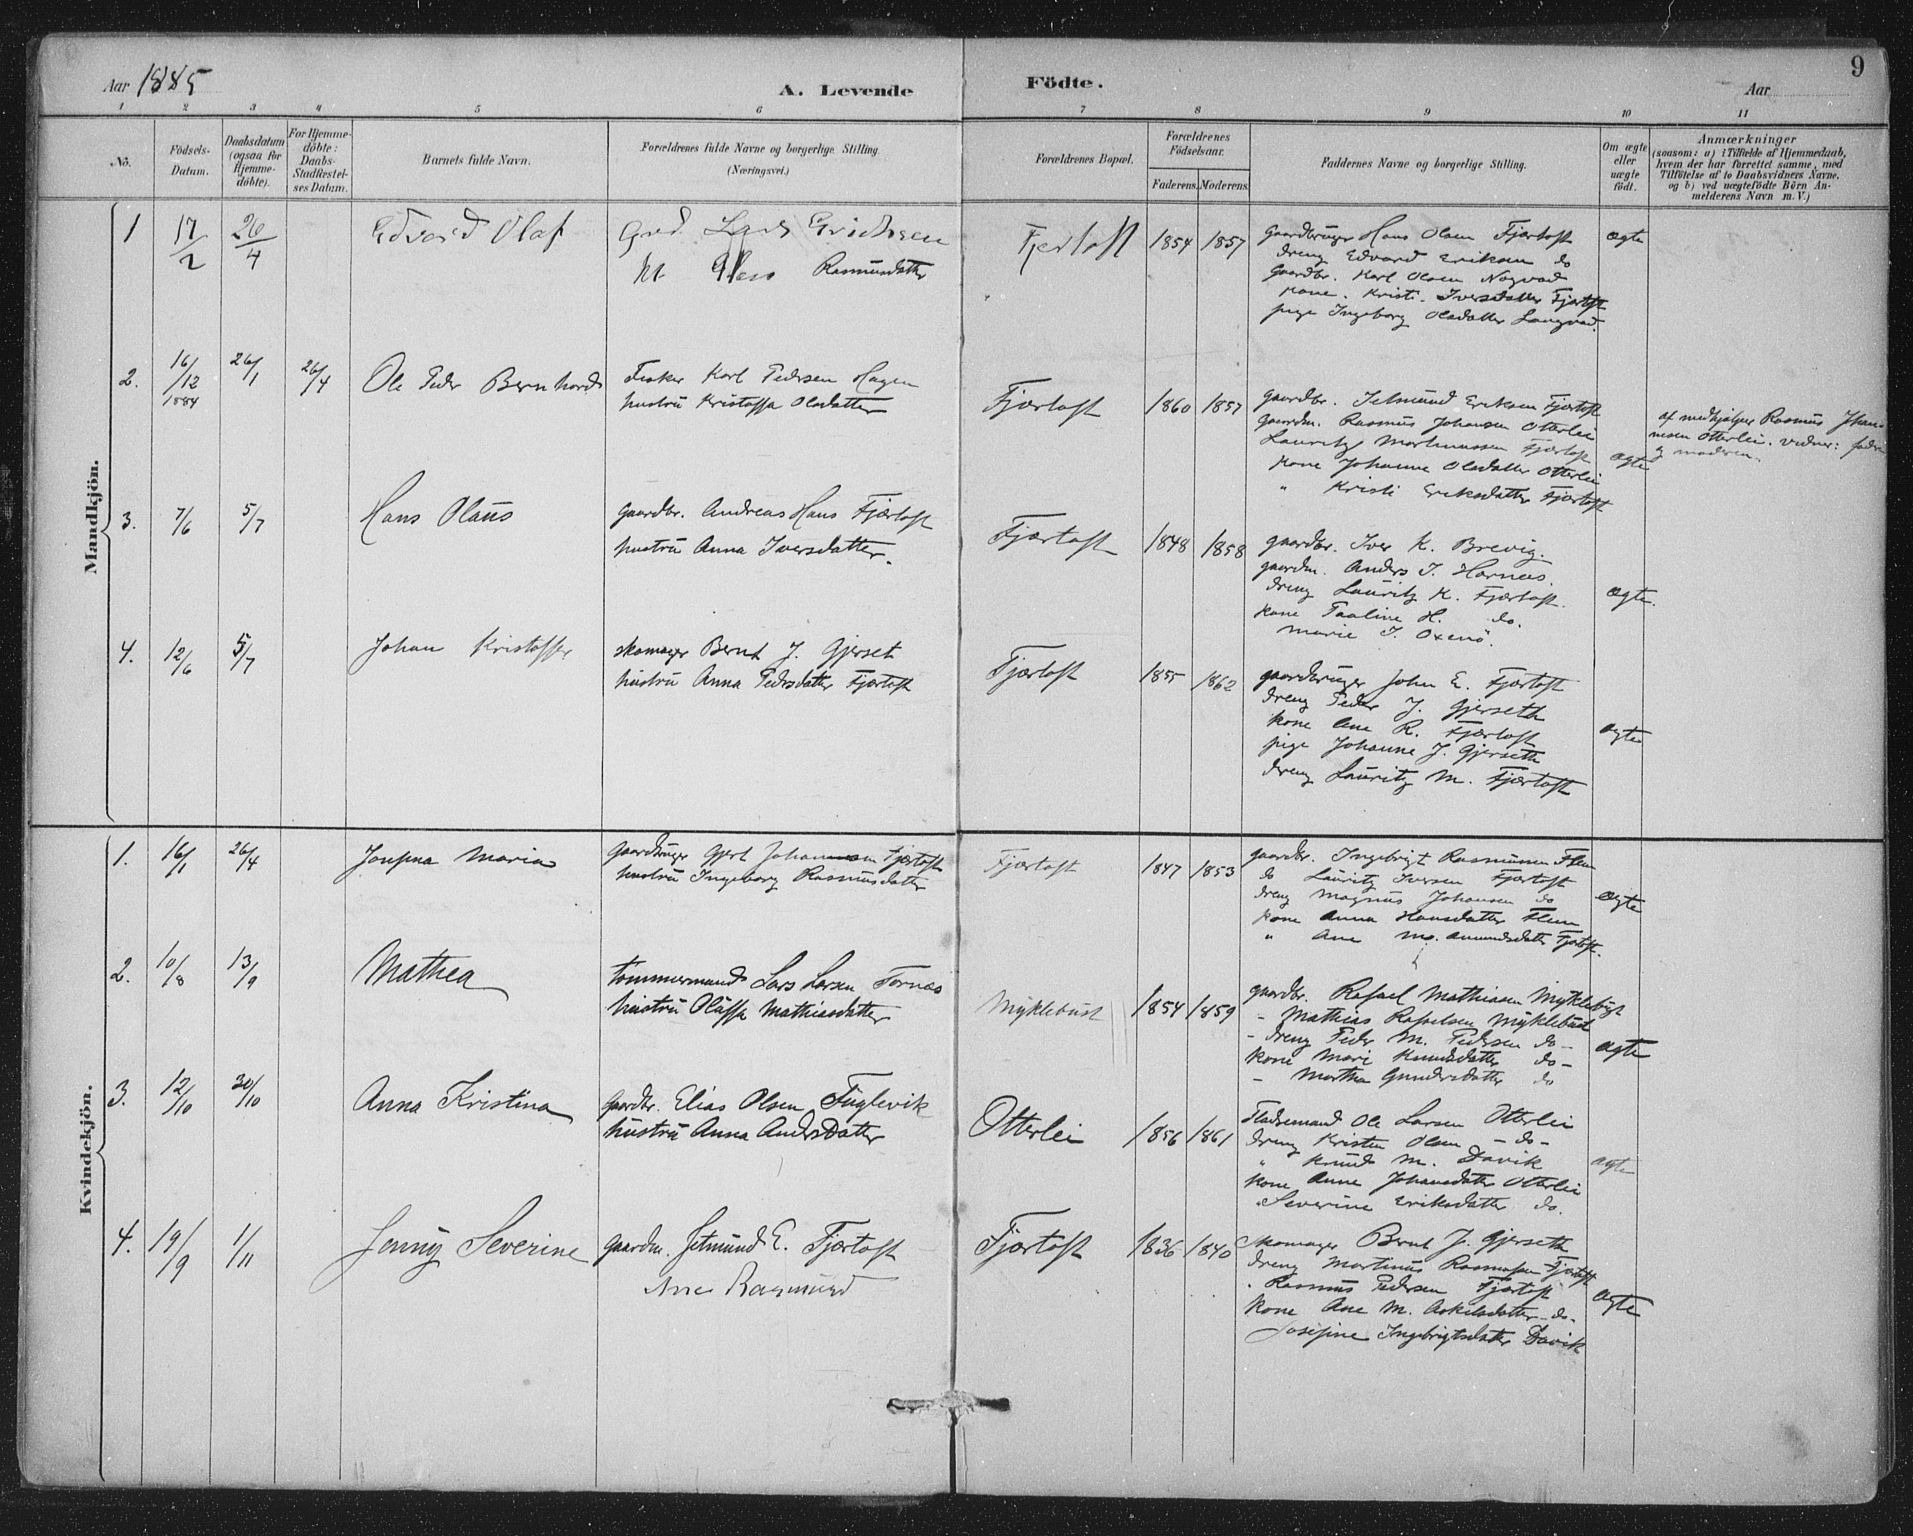 9
Aar 1885 A. Levende Födte. Aar
1 2 3 4 5 6 7 8 9 10 11
No.
Födsels-
Datum.
Daabsdatum
(ogsaa for
Hjemme-
döbte).
For Hjemme-
döbte:
Daabs-
Stadfæstel-
ses Datum.
Barnets fulde Navn.
Forældrenes fulde Navne og borgerlige Stilling.
(Næringsvei.)
Forældrenes Bopæl.
Forældrenes
Födselsaar.
Faderens. Moderens.
Faddernes Navne og borgerlige Stilling.
Om ægte
eller
uægte
födt.
Anmærkninger
(saasom: a) i Tilfælde af Hjemmedaab,
hvem der har forrettet samme, med
Tilföielse af to Daabsvidners Navne,
og b) ved uægtefödte Börn An-
melderens Navn m. V.)
Mandkjön.
1 17/2 26/4 Edvard Olaf
Lars Eriksen
Rasmusdatter
Fjertoft 1854 1857
gaardbruger Hans Olsen Fjærtoft
dreng Edvard Eriksen do
gaardbr. Karl Olsen Nogvad
kone. Kristi. Iversdatter Fjærtoft
pige Ingeborg Olsdatter Longvad.
ægte
2. 16/12 1884 26/1 26/4 Ole Peder Bernhard
Fisker Karl Pedersen Hagen
hustru Kristoffa Olsdatter
Fjærtoft 1860 1857
gaardbr. Jetmund Eriksen Fjærtoft
gaardm. Rasmus Johansen Otterlei
Lauritz Martinussen Fjærtoft
kone Johanne Olsdatter Otterlei
" Kristi Eriksdatter Fjærtoft
ægte
af medhjælper Rasmus Johan-
nesen Otterlei. vidner: fader
og moderen.
3. 7/6 5/7 Hans Olaus
gaardbr. Andreas Hans Fjærtoft
hustru Anna Iversdatter.
Fjærtoft 1848 1858
gaardbr. Iver K. Brevig.
gaardm. Anders I. Harnæs.
dreng Lauritz K. Fjærtoft.
kone Paaline H. do.
Marie I. Oxenö.
ægte.
4. 12/6 5/7 Johan Kristoffer
skomager Bernt J. Gjerset
hustru Anna Pedersdatter Fjærtoft
Fjærtoft 1855 1862
gaardbruger John E. Fjærtoft
dreng Peder J. Gjerseth
kone Ane R. Fjærtoft
pige Johanne J. Gjerseth
dreng Lauritz M. Fjærtoft
ægte
Kvindekjön.
1. 16/1 26/4 Maria
gaardbruger Gjert Johannesen Fjærtoft
hustru Ingeborg Rasmusdatter
Fjærtoft 1847 1853
gaardbr. Ingebrigt Rasmussen Flem
do Lauritz Iversen Fjærtoft
dreng Magnus Johansen do
kone Anna Hansdatter Flem
" Ane M. Amundsdatter Fjærtoft.
ægte
2. 10/8 13/9 Mathea
tømmermand Lars Larsen Tornæs
hustru Oluffa Mathiasdatter
Myklebust 1854 1859
gaardbr. Rafael Mathiassen Myklebust
- Mathias Rafaelsen Myklebust
- dreng Peder M. Pedersen do -
kone Mari Knudsdatter do -
- Martha Gundersdatter do
ægte
3. 12/10 30/10 Anna Kristina
gaardbr. Elias Olsen Fuglevik
hustru Anna Andersdatter
Otterlei 1856 1861
Ole Larsen Otterlei
dreng Kristen Olsen - do -
" Knud M. Davik
kone Anne Johansdatter Otterlei
Severine Eriksdatter do.
ægte
4. 19/9 1/11 Jenny Severine
gaardm. Jetmund E. Fjærtoft
Ane Rasmusd
Fjærtoft 1836 1840
Skomager Bernt J. Gjerseth
dreng Martinus Rasmussen Fjærtoft
. Rasmus Pedersen Fjærtoft
kone Ane M. Askilsdatter - do.
Josefine Ingebrigtsdatter Davik
ægte